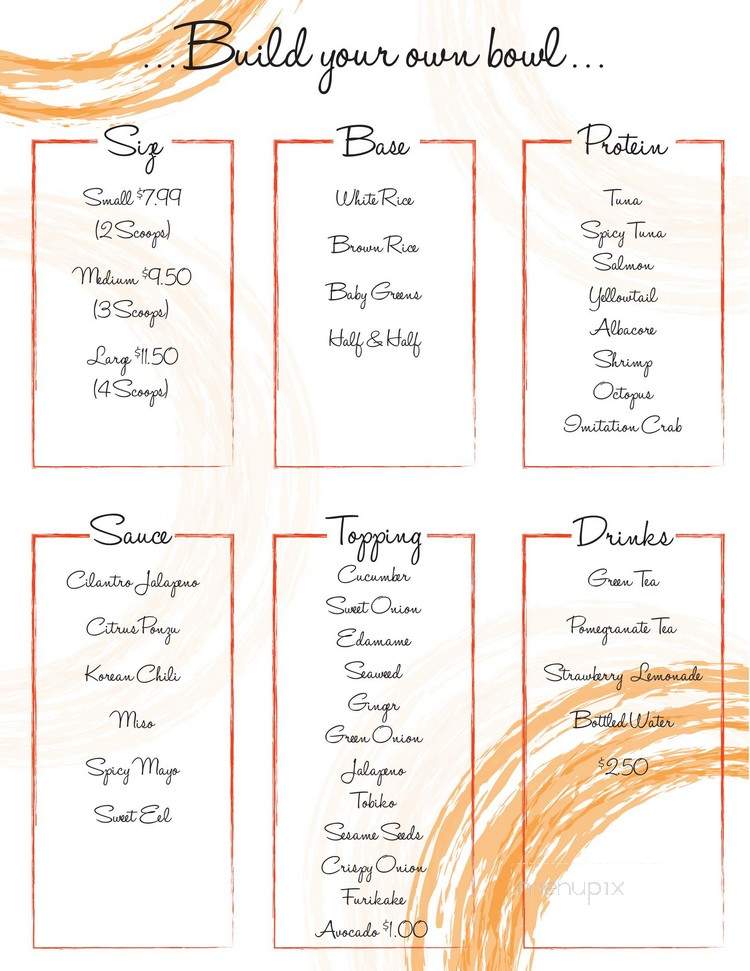 ...Build your own bowl...
Size
Small $7.99
(2 Scoops)
Medium $9.50
(3 Scoops)
Large $11.50
(4 Scoops)
Base
White Rice
Brown Rice
Baby Greens
Half & Half
Protein
Tuna
Spicy Tuna
Salmon
Yellowtail
Albacore
Shrimp
Octopus
Imitation Crab
Sauce
Cilantro Jalapeno
Citrus Ponzu
Korean Chili
Miso
Spicy Mayo
Sweet Eel
Topping
Cucumber
Sweet Onion
Edamame
Seaweed
Ginger
Green Onion
Jalapeno
Tobiko
Sesame Seeds
Crispy Onion
Furikake
Avocado $1.00
Drinks
Green Tea
Pomegranate Tea
Strawberry Lemonade
Bottled Water
$2.50
menupix